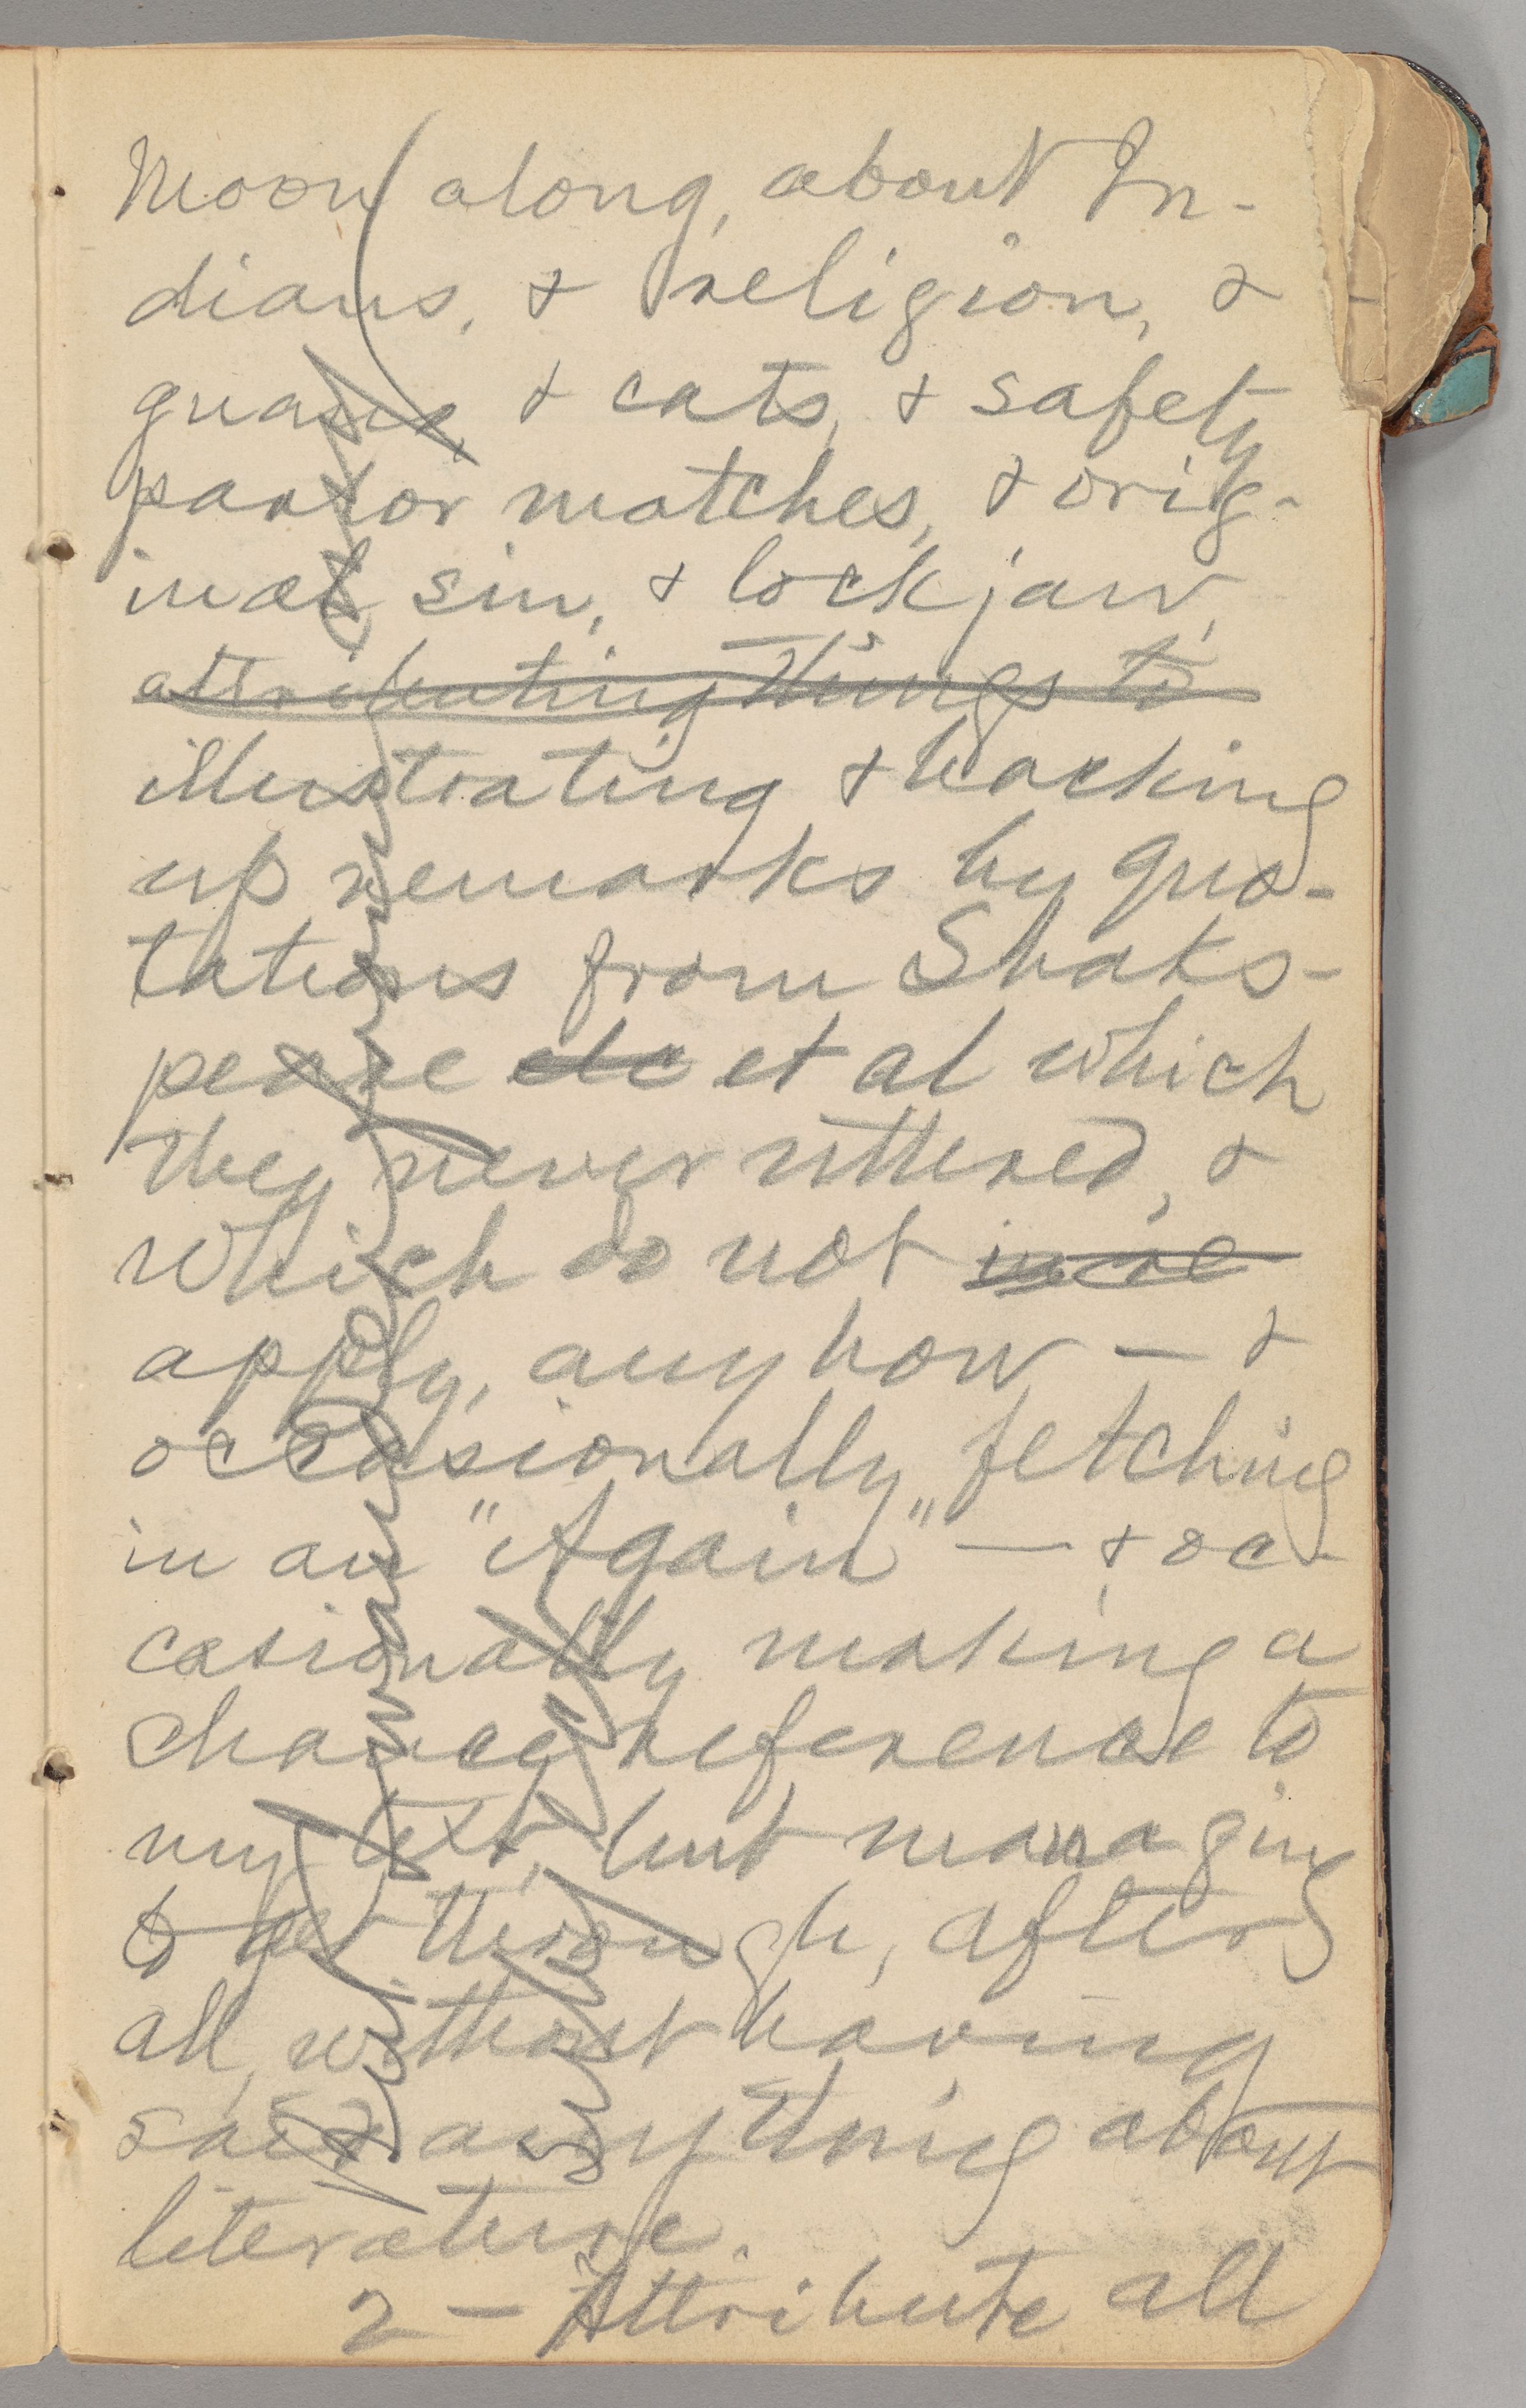 Moon along, about In-
dians, & religion, &
guano, & cats, & safety
parlor matches, & orig-
inal sin, & lockjaw,
attributing things to
illustrating & backing
up remarks by quo-
tations from Shaks-
peare etc et al which
they never uttered, &
which do not
apply, anyhow — &
occasionally fetching
in an "Again" — & oc-
casionally making a
chance reference to
my text, but managing
to get through, after
all, without having
said anything about
literature.
2 — Attribute all